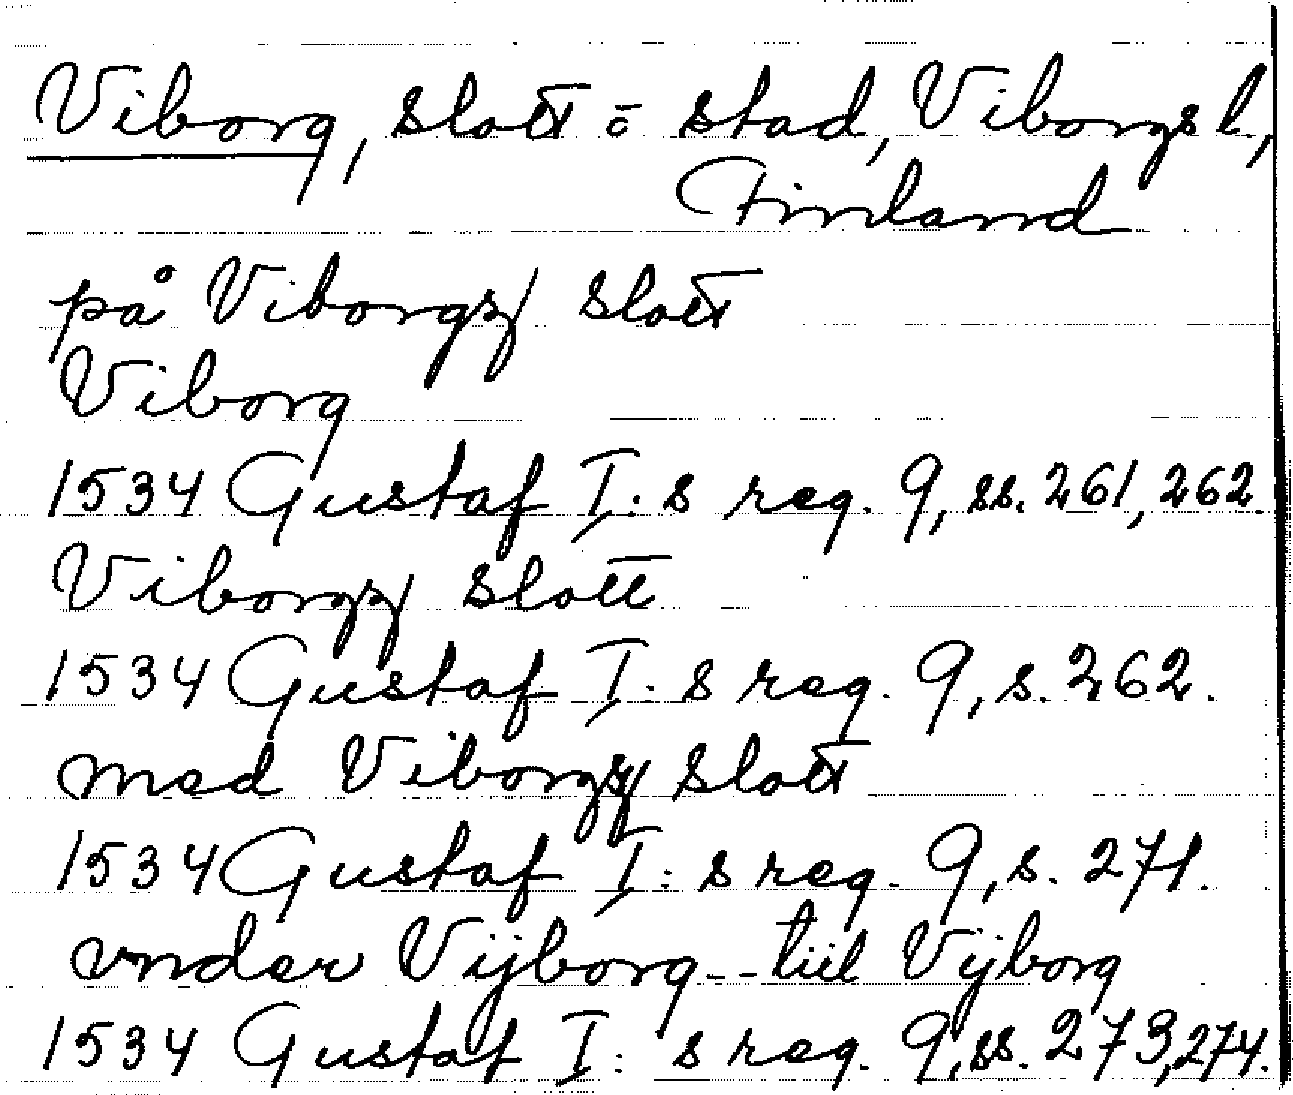 Viborg, slott o stad, Viborgs l,
Finland
på Viborgz slott
Viborg
1534 Gustaf I:s reg. 9, ss. 261, 262.
Viborgz slott
1534 Gustaf I:s reg. 9, s. 262.
med Viborgz slott
1534 Gustaf I:s reg. 9, s. 271.
vnder Vijborg -- tiil Vijborg
1534 Gustaf I:s reg. 9, ss. 273, 274.